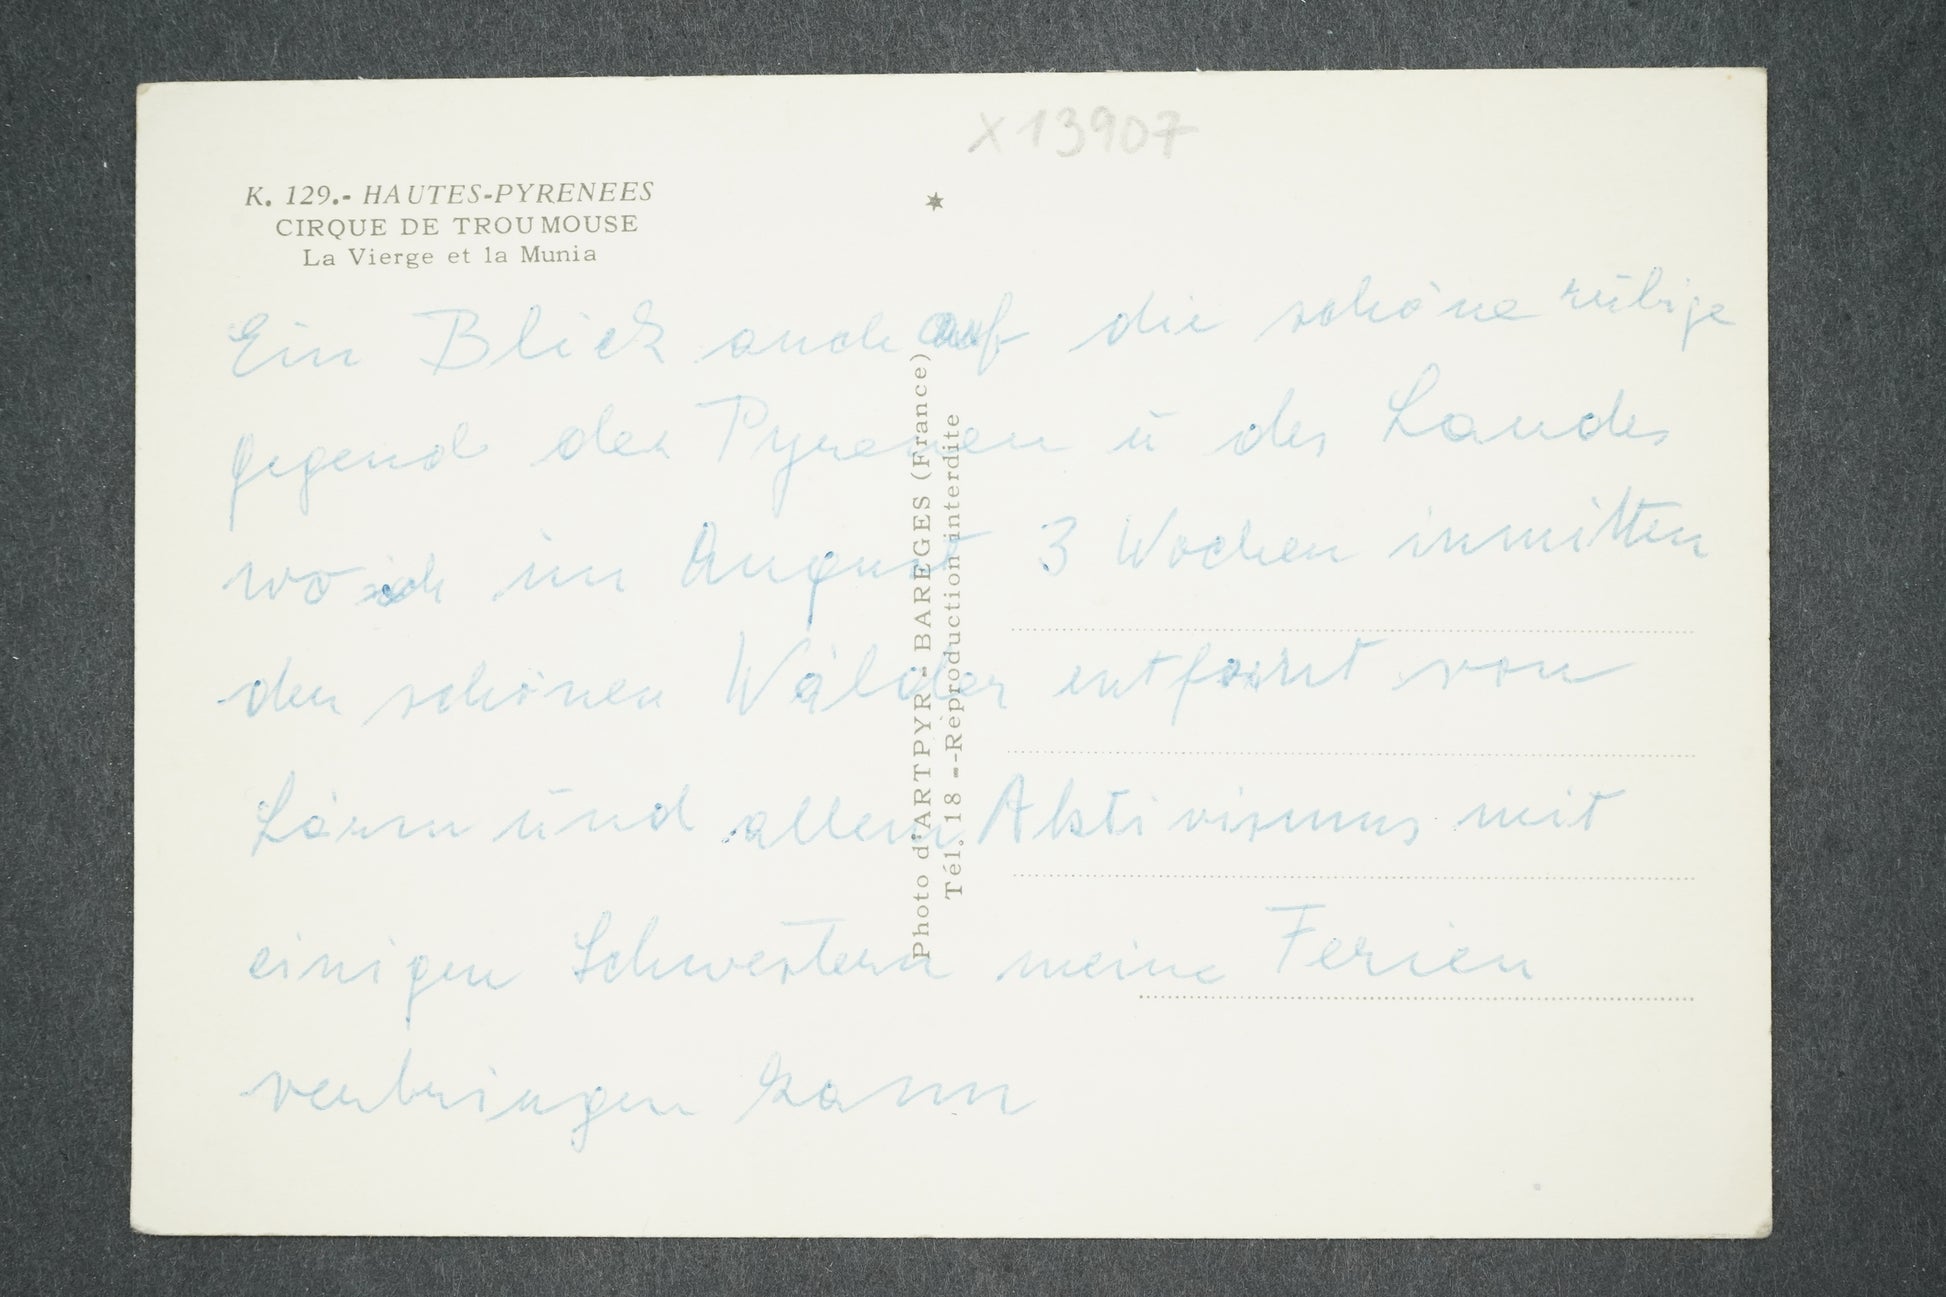 X 13907
K. 129.- HAUTES-PYRENEES
CIRQUE DE TROUMOUSE
La Vierge et la Munia
Ein Blick auch auf die schöne rühige
gegend der Pyrenen ü des Landes
wo ich im August 3 Wochen inmitten
den schönen Wälder entfernt von
Lärm und allem Aktivismus mit
einigen Schwestern meine Ferien
verbringen kann
Photo d'ARTPYR - BAREGES (France)
Tél. 18 -- Reproduction interdite